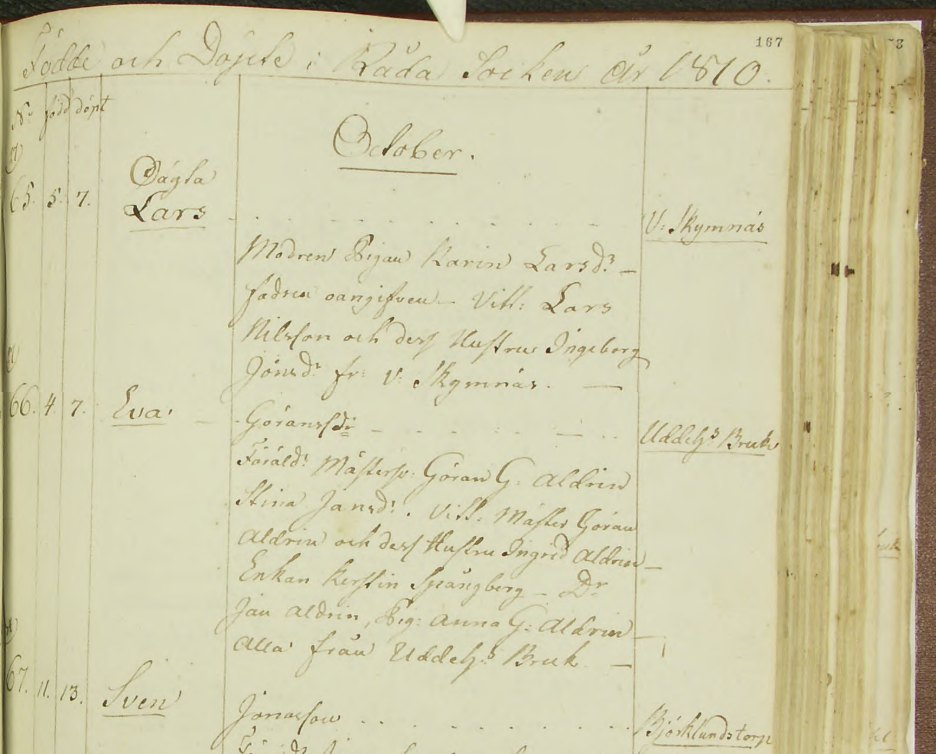 167
Födde och Döpte i Råda Socken År 1810.
No född döpt
October.
65. 5. 7. Oägta
Lars V: Skymnäs
Modren Pigan Karin Larsdr
fadren oangifven Vitt: Lars
Nilsson och dess Hustru Ingeborg
Jönsdr fr: V: Skymnäs.
66. 4. 7. Eva. Göransdr Uddeh:s Bruk
Föräldr Mästersv: Göran G: Aldrin
Stina Jansdr. Vitt: Mäster Göran
Aldrin och dess Hustru Ingrid Aldrin
Enkan Kerstin Spångberg Dr
Jan Aldrin, Pig: Anna G: Aldrin
Alla från Uddeh:s Bruk
67. 11. 13. Sven Jonasson Björklundstorp